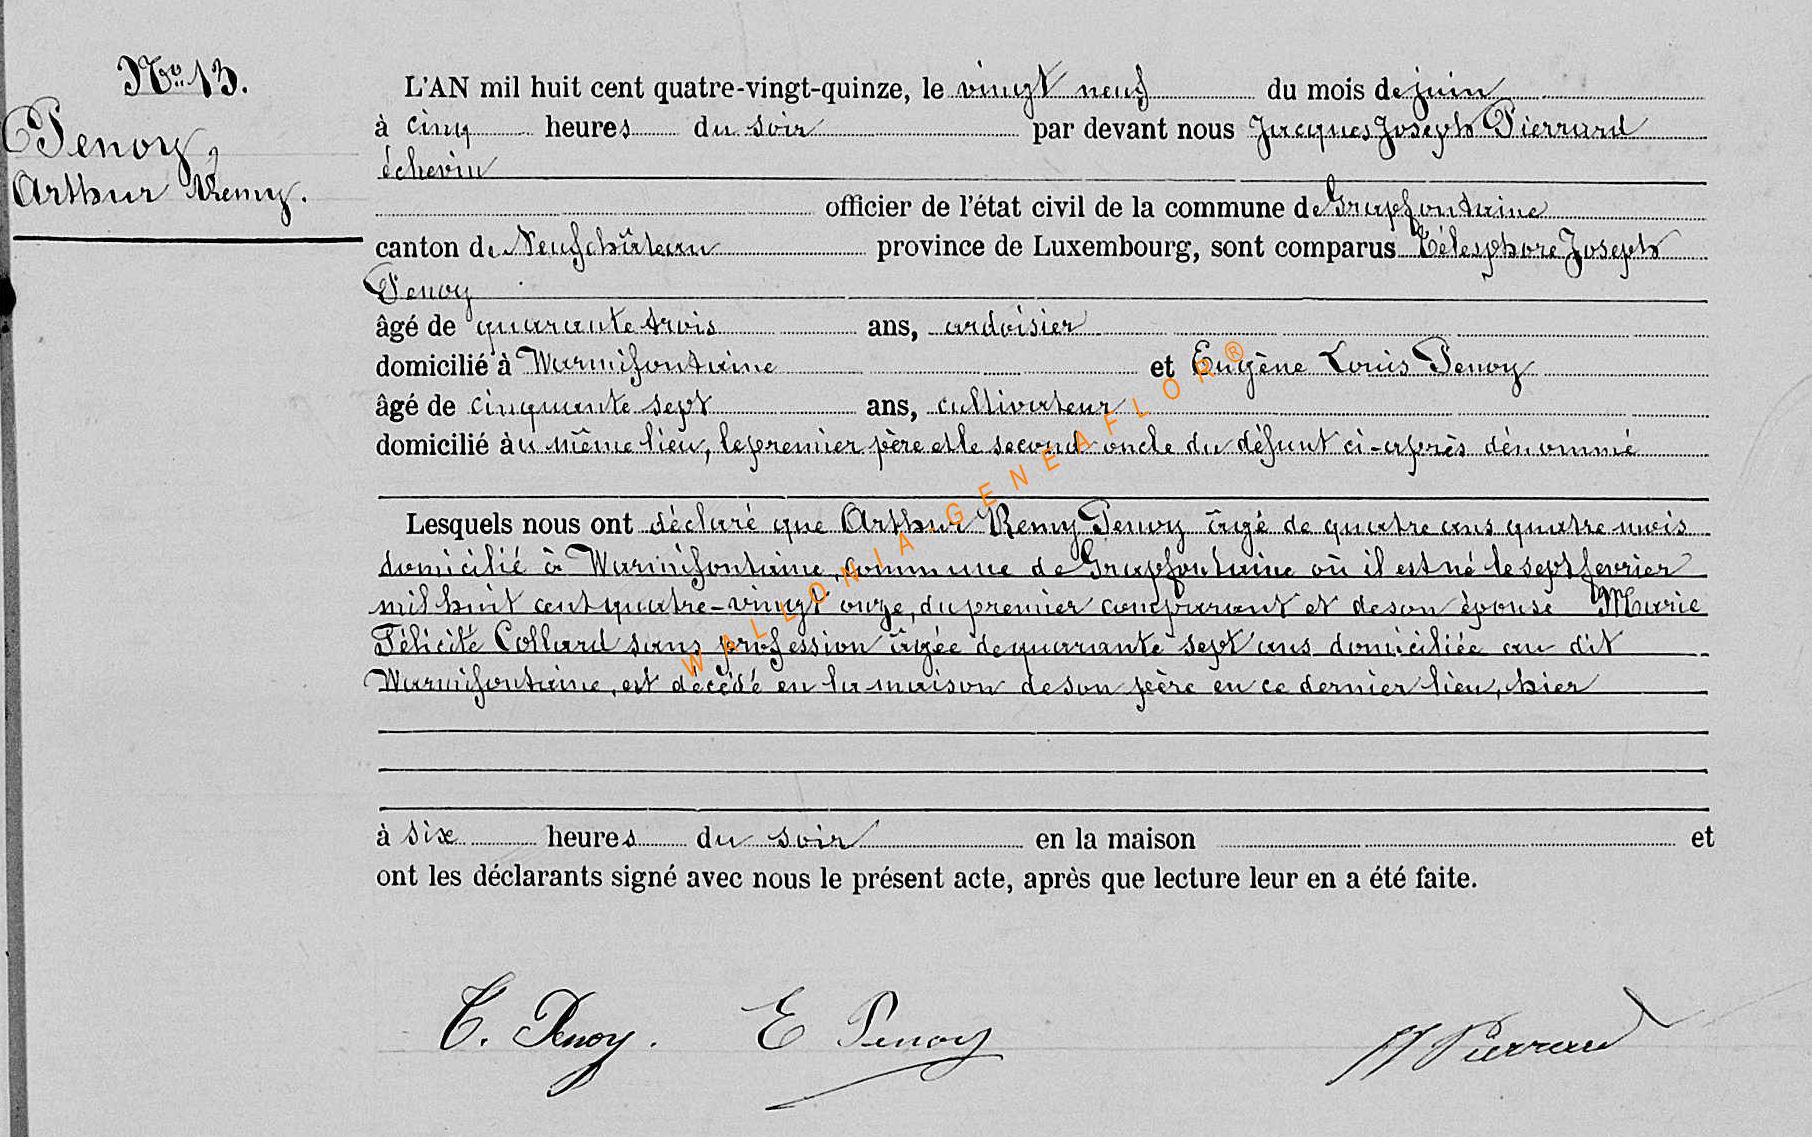 No 13.
Penoy,
Arthur Remy.
L'AN mil huit cent quatre-vingt-quinze, le vingt neuf du mois de juin
à cinq heures du soir par devant nous Jacques Joseph Pierrard
échevin
officier de l'état civil de la commune de Grapfontaine
canton de Neufchâteau province de Luxembourg, sont comparus Télesphore Joseph
Penoy
âgé de quarante trois ans, ardoisier
domicilié à Warmifontaine et Eugène Louis Penoy
âgé de cinquante sept ans, cultivateur
domicilié au même lieu, le premier père et le second oncle du défunt ci-après dénommé
Lesquels nous ont déclaré que Arthur Remy Penoy âgé de quatre ans quatre mois
domicilié à Warmifontaine, commune de Grapfontaine où il est né le sept fevrier
mil huit cent quatre-vingt onze, du premier comparant et de son épouse Marie
Félicité Collard sans profession âgée de quarante sept ans domiciliée au dit
Warmifontaine, est décédé en la maison de son père en ce dernier lieu, hier
à six heures du soir en la maison et
ont les déclarants signé avec nous le présent acte, après que lecture leur en a été faite.
T. Penoy. E Penoy JJ Pierrard
WALLONIA-GENEAFLOR®